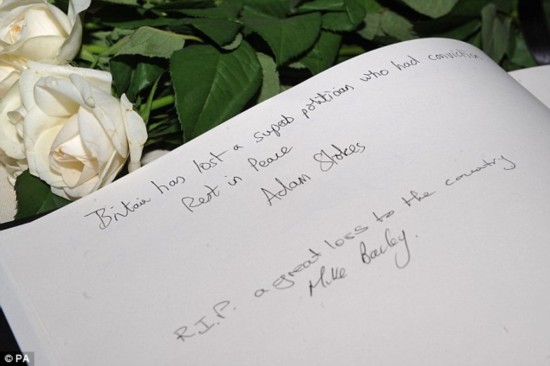 Britain has lost a superb politician who had conviction
Rest in Peace
Adam Stokes
R.I.P. a great loss to the country
Mike Bailey.
© PA